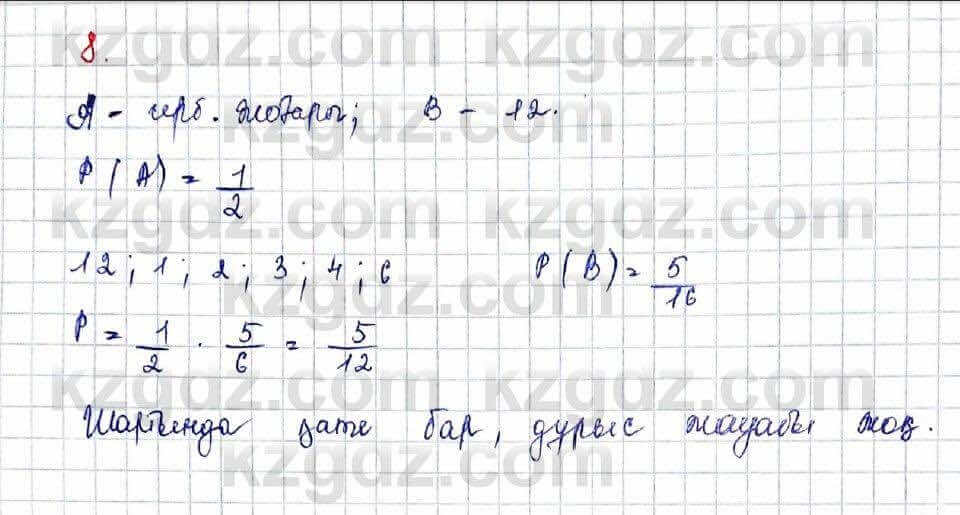 8.
A - герб. жоғары; B - 12.
P(A) = 1/2
12; 1; 2; 3; 4; 6 P(B) = 5/16
P = 1/2 · 5/6 = 5/12
Шартында қате бар, дұрыс жауабы жоқ.
kzgdz.com kzgdz.com
kzgdz.com
kzgdz.com kzgdz.com
kzgdz.com
kzgdz.com kzgdz.com
kzgdz.com